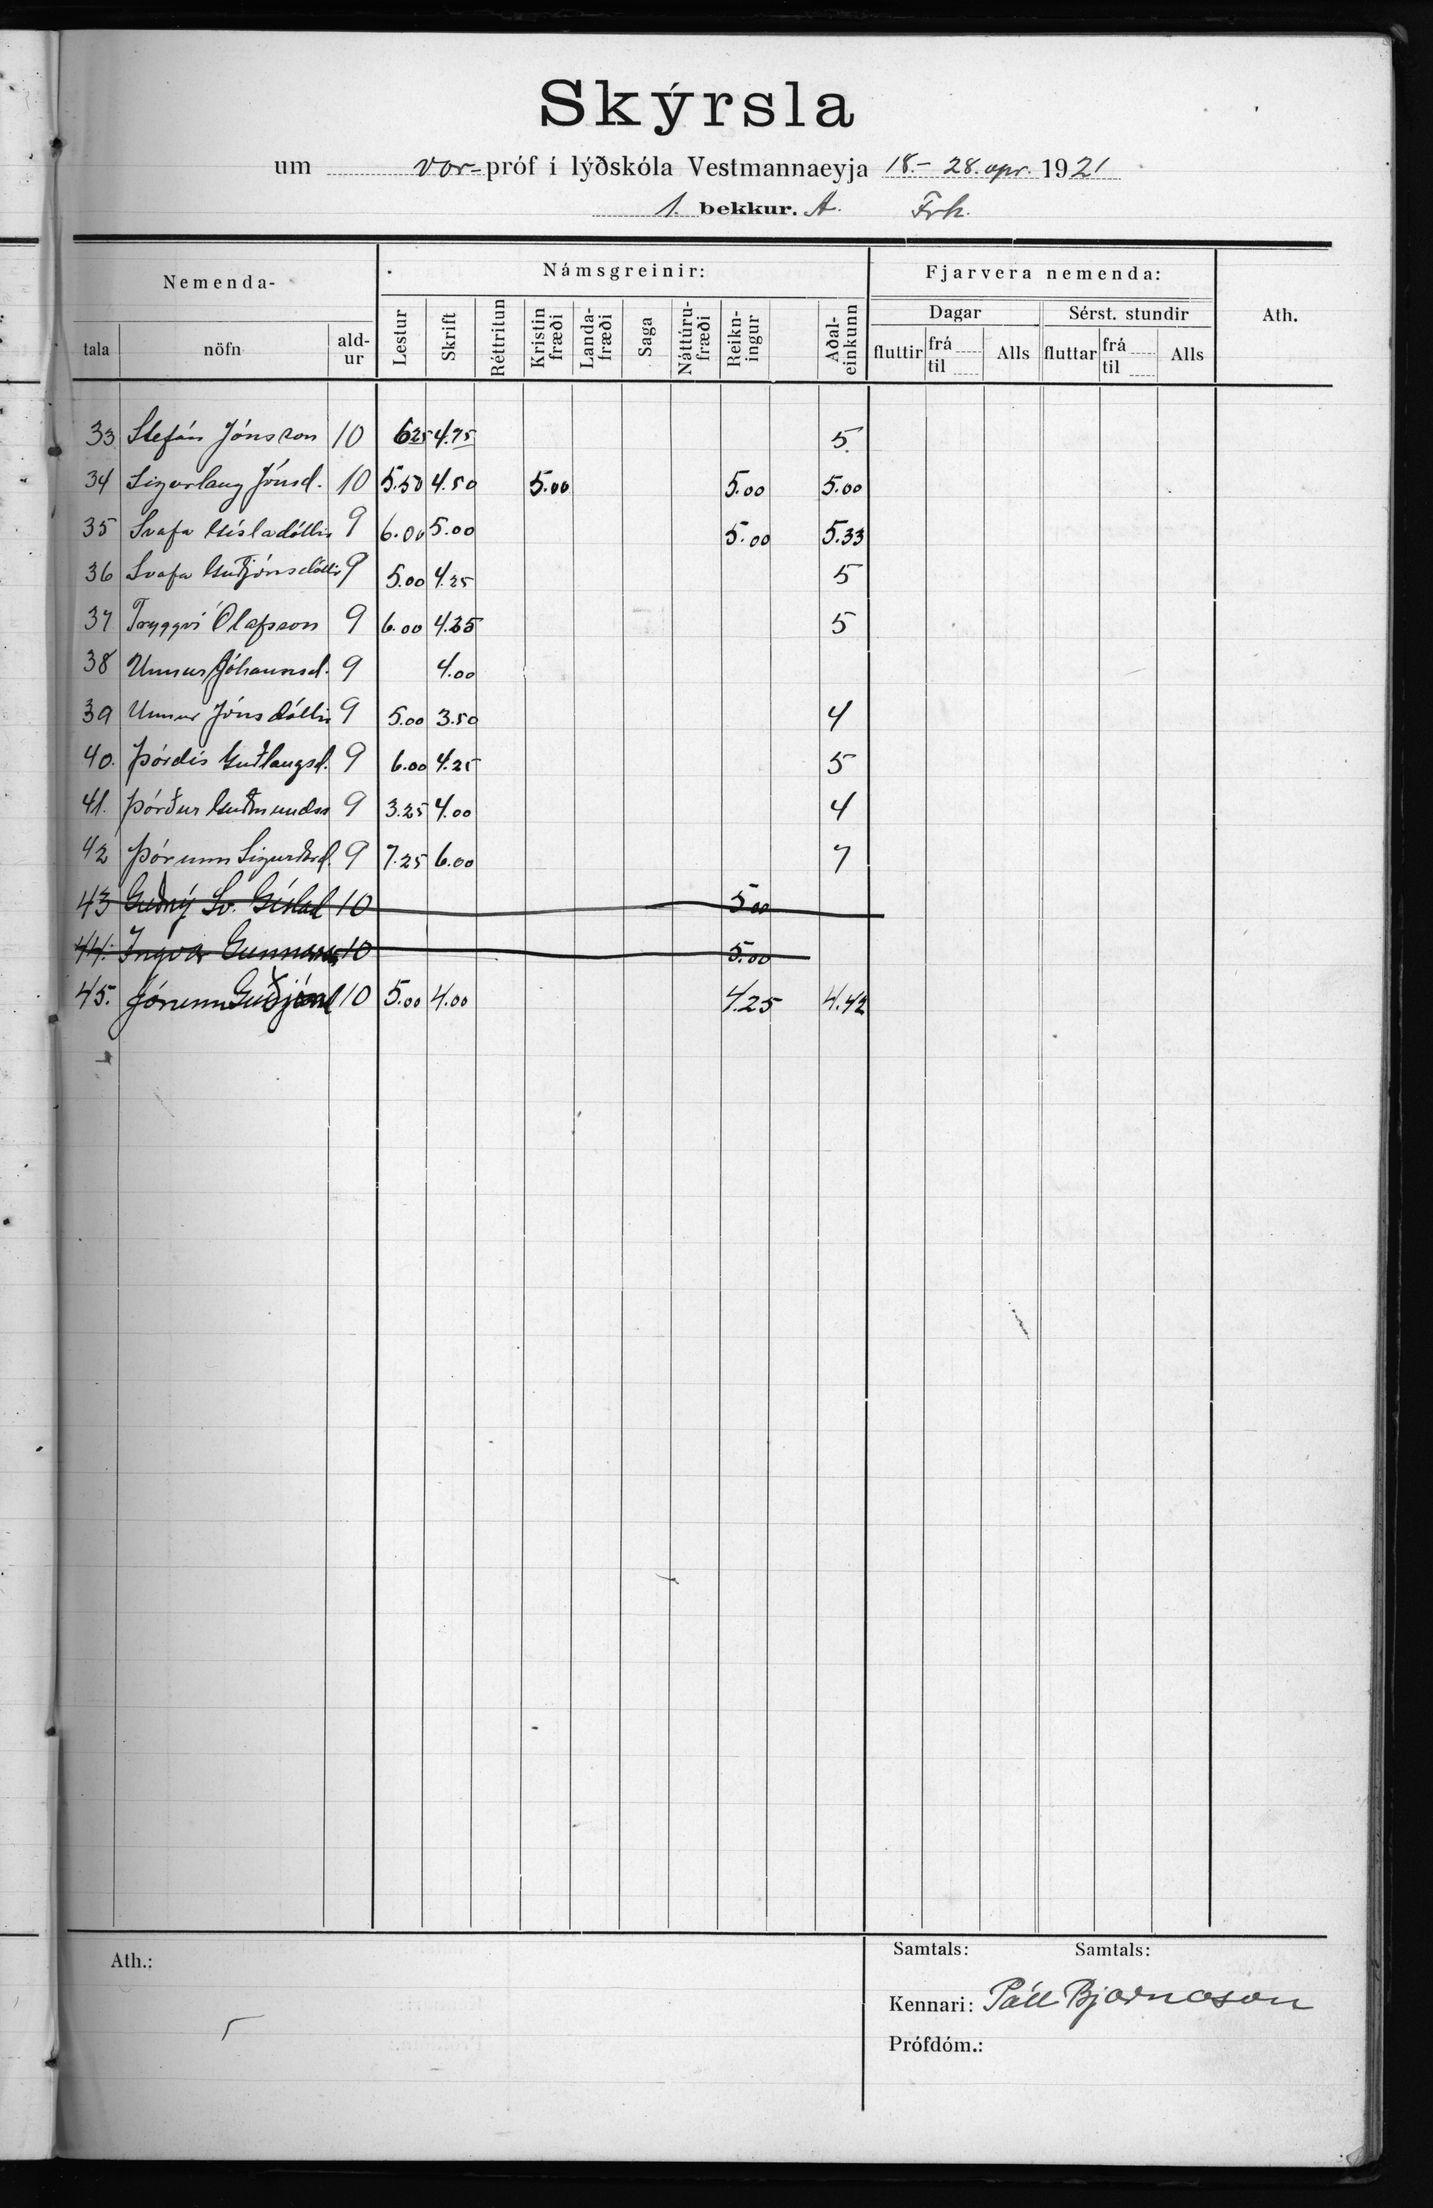 Skýrsla
um vor-próf í lýðskóla Vestmannaeyja 18.- 28. apr. 1921
1. bekkur. A. Frh.
Nemenda- Námsgreinir: Fjarvera nemenda: Ath.
Dagar Sérst. stundir
tala nöfn ald-ur Lestur Skrift Réttritun Kristin fræði Landa-fræði Saga Náttúru-fræði Reikn-ingur Aðal-einkunn fluttir frá til Alls fluttar frá til Alls
33 Stefán Jónsson 10 6.25 4.75 5.
34 Sigurlaug Jónsd. 10 5.50 4.50 5.00 5.00 5.00
35 Svafa Gísladóttir 9 6.00 5.00 5.00 5.33
36 Svafa Guðjónsdóttir 9 5.00 4.25 5
37 Tryggvi Ólafsson 9 6.00 4.25 5
38 Unnur Jóhannsd. 9 4.00
39 Unnur Jónsdóttir 9 5.00 3.50 4
40. Þórdís Guðlaugsd. 9 6.00 4.25 5
41. Þórður Guðmundss 9 3.25 4.00 4
42 Þórunn Sigurðard. 9 7.25 6.00 7
43 Guðný Sv. Gíslad 10 5.00
44. Ingvar Gunnarss 10 5.00
45. Jórunn Guðjónsd 10 5.00 4.00 4.25 4.42
Ath.:
Samtals: Samtals:
Kennari: Páll Bjarnason
Prófdóm.: